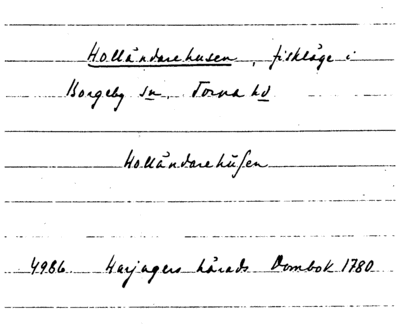 Holländarehusen, fiskläge i
Borgeby sn, Torna hd
Holländarehuſen
4986 Harjagers härads Dombok 1780